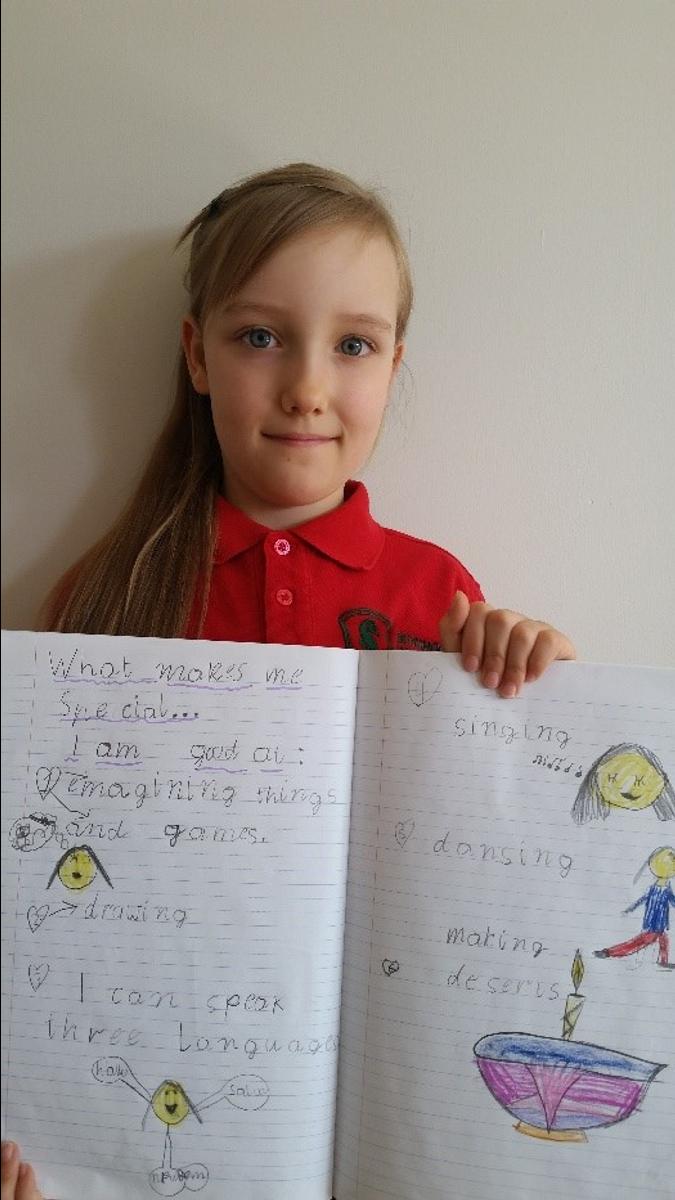 What makes me
Special...
I am good at:
emagining things
and games.
drawing
I can speak
three languages
singing
dansing
making
deserts